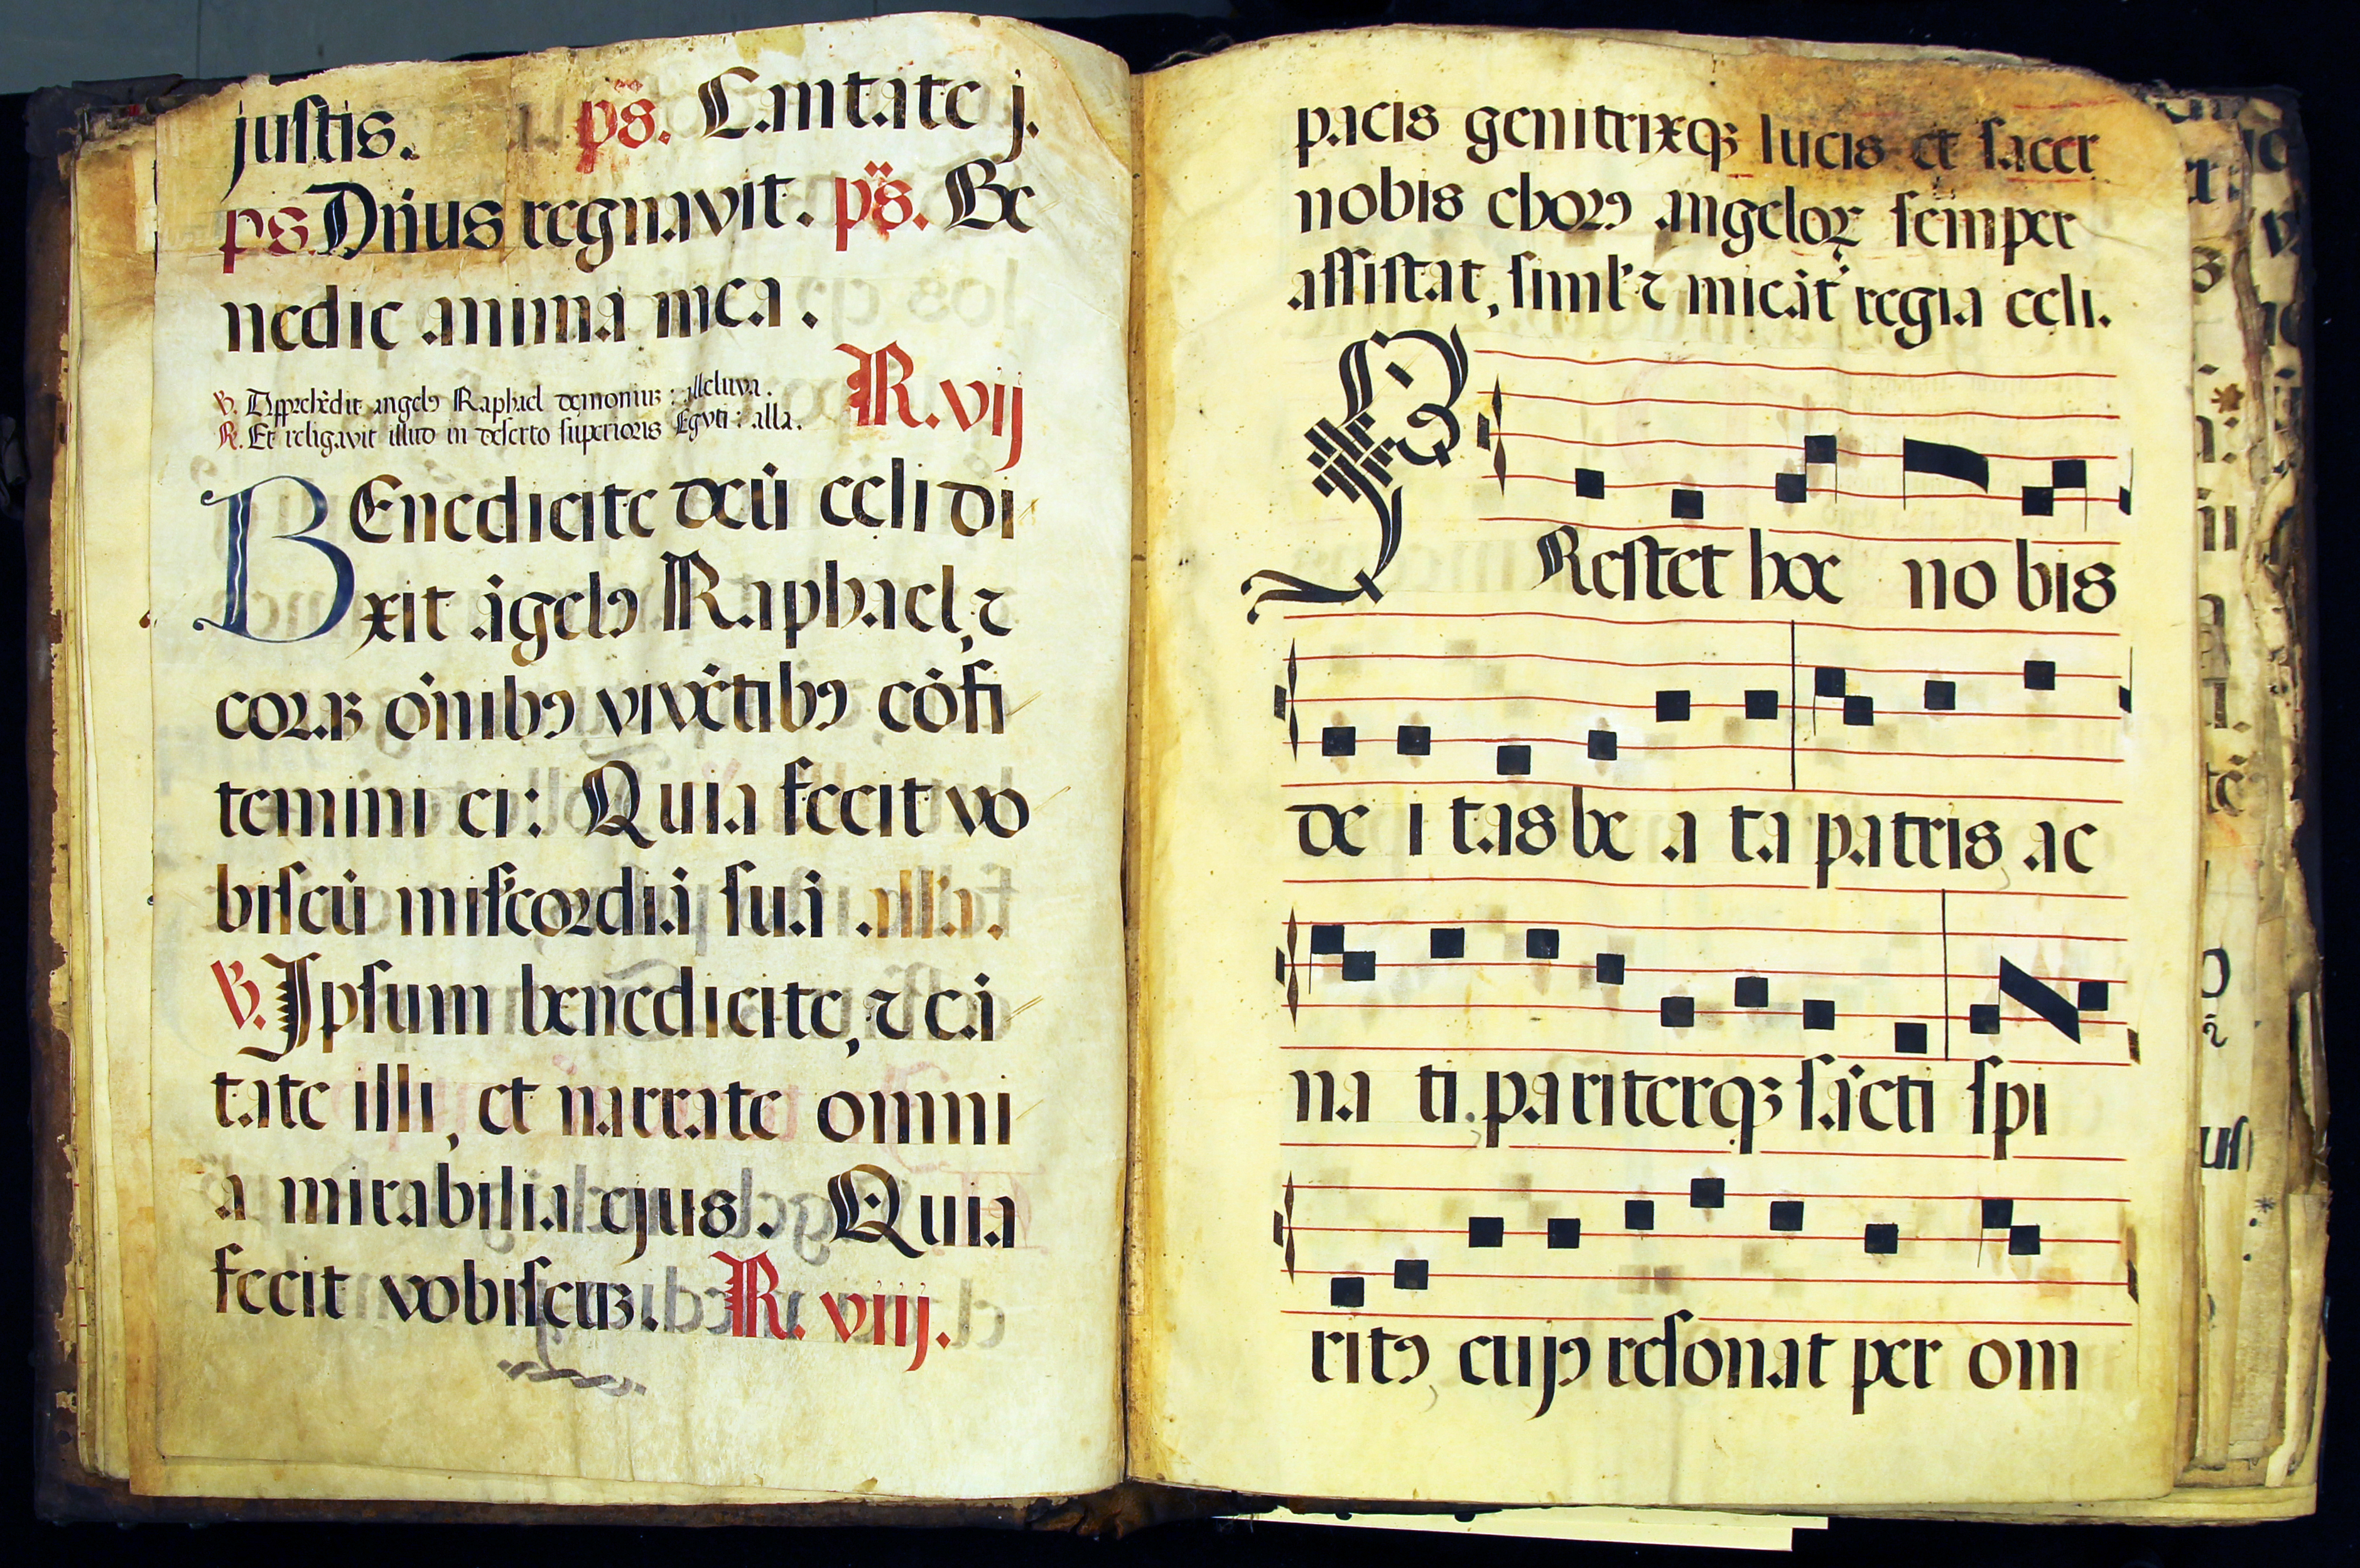 justis. ps. Cantate j.
ps. Dñus regnavit. ps. Be
nedic anima mea.
V. Apprehēdit angelꝰ Raphael demoniuꝫ: alleluya.
R. Et religavit illud in deserto superioris Egyti: alla.
R. vij
BEnedicite deū celi di
xit āgelꝰ Raphael, ⁊
coraꝫ oīnibꝰ vivētibꝰ cōfi
temini ei: Quia fecit vo
biscū mis̄cordiā suā. alla.
V. Ipsum benedicite, ⁊ cā
tate illi, et narrate omni
a mirabilia ejus. Quia
fecit vobiscuꝫ. R. viij.
pacis genitrixqꝫ lucis et sacer
nobis chorꝰ angeloꝝ semper
assistat, siml' ⁊ micāt regia celi.
PRestet hoc no bis
de i tas be a ta patris, ac
na ti. pariterqꝫ sācti spi
ritꝰ, cujꝰ resonat per om